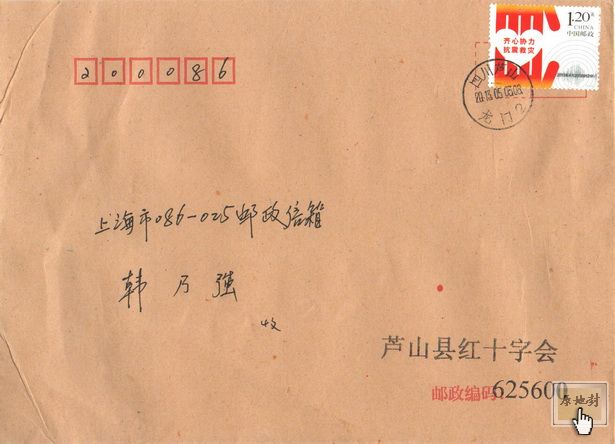 1.20元
CHINA
中国邮政
齐心协力
抗震救灾
四川芦山
2013.05.03.08
龙门2
200086
上海市086-025邮政信箱
韩乃强
收
芦山县红十字会
邮政编码:625600
原地封